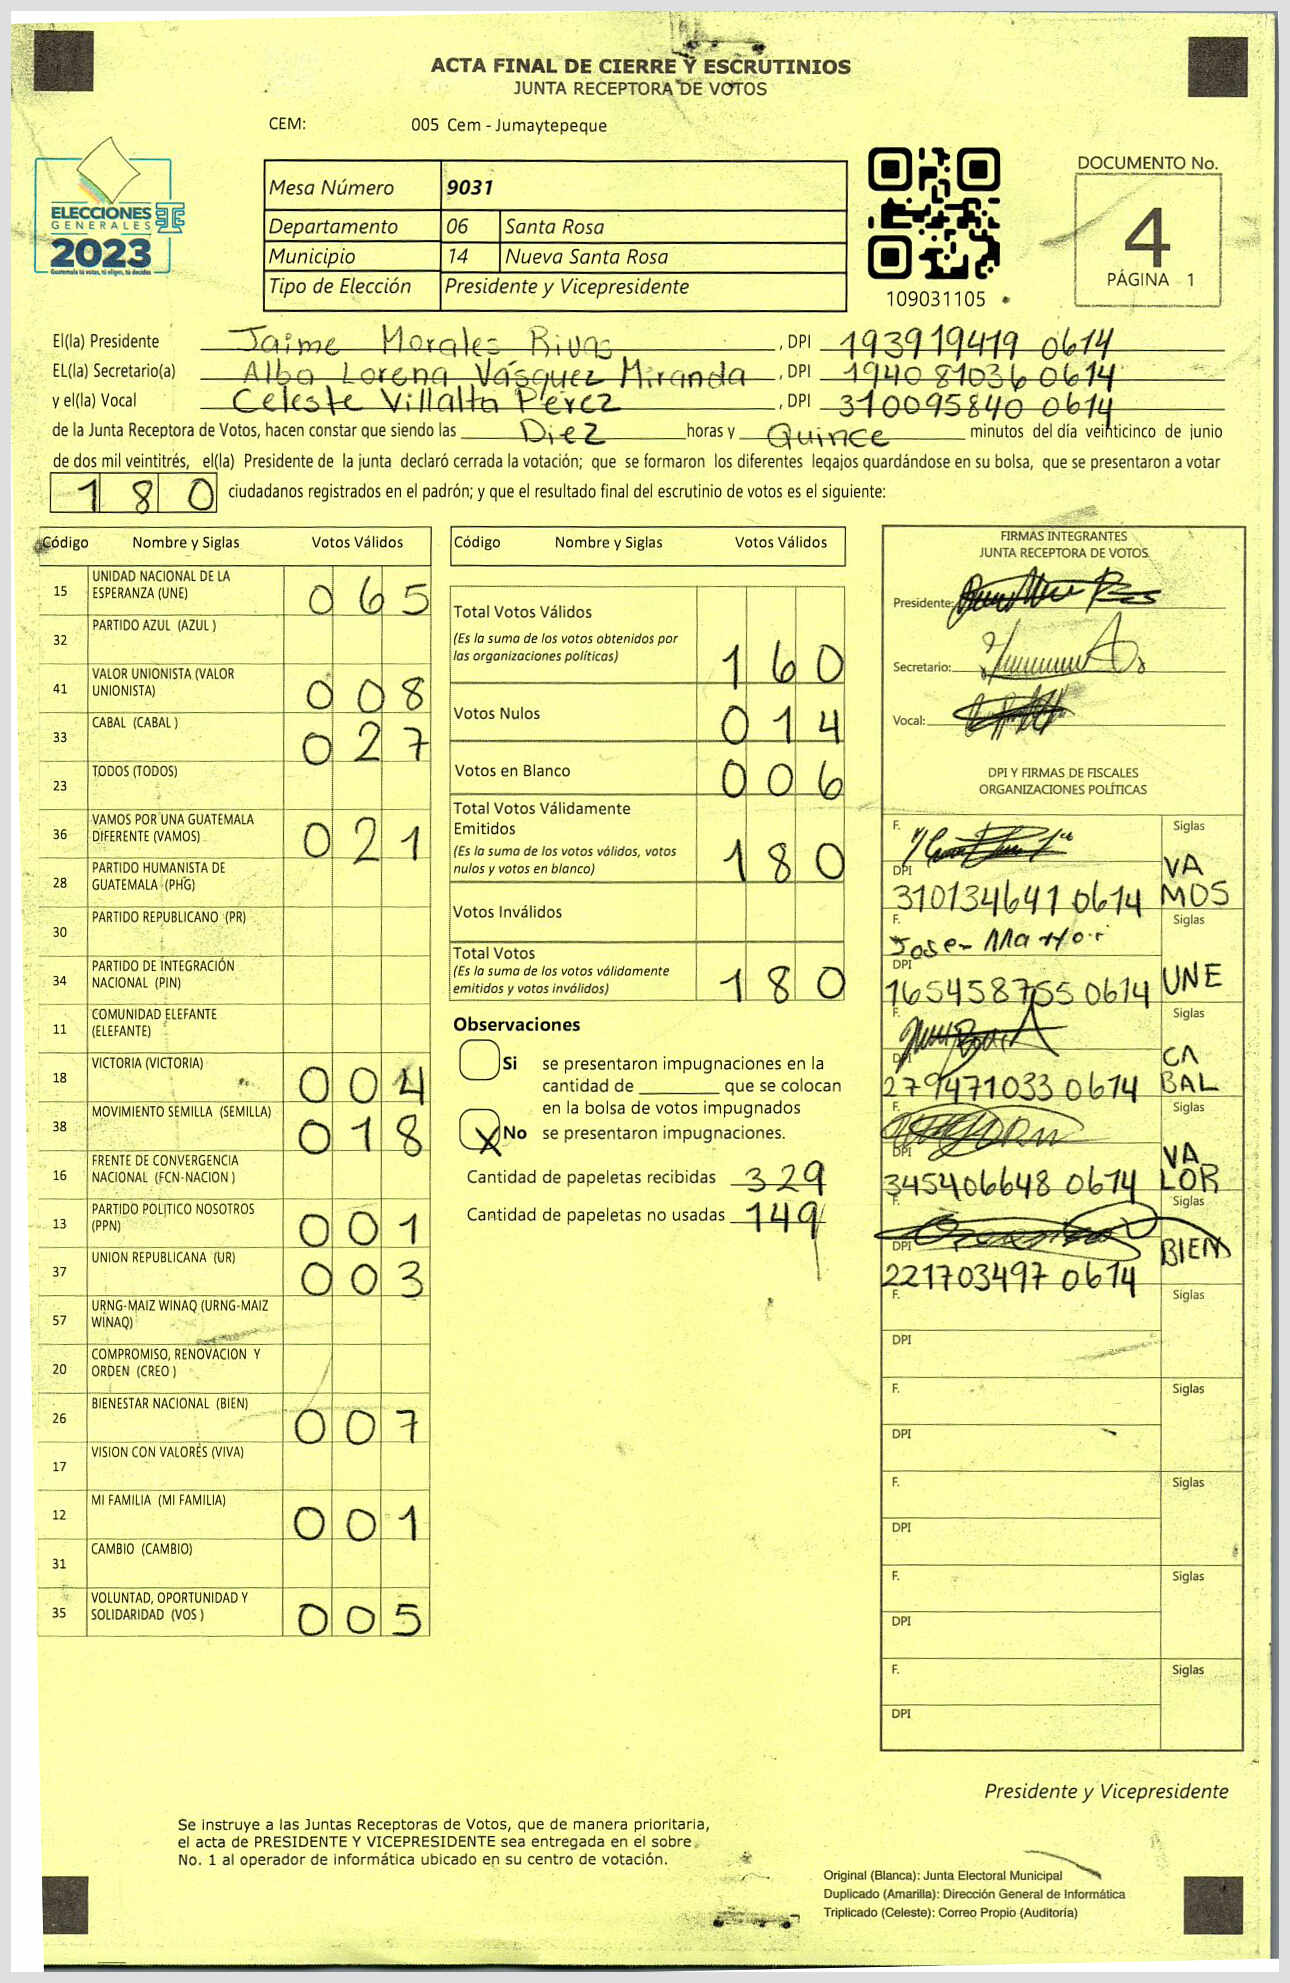 ACTA FINAL DE CIERRE Y ESCRUTINIOS
JUNTA RECEPTORA DE VOTOS
CEM: 005 Cem - Jumaytepeque
ELECCIONES
GENERALES
2023
Guatemala tú votas, tú eliges, tú decides
Mesa Número 9031
Departamento 06 Santa Rosa
Municipio 14 Nueva Santa Rosa
Tipo de Elección Presidente y Vicepresidente
109031105
DOCUMENTO No.
4
PÁGINA 1
El(la) Presidente Jaime Morales Rivas , DPI 193919419 0614
EL(la) Secretario(a) Alba Lorena Vásquez Miranda , DPI 1940 81036 0614
y el(la) Vocal Celeste Villalta Pérez , DPI 310095840 0614
de la Junta Receptora de Votos, hacen constar que siendo las Diez horas y Quince minutos del día veinticinco de junio
de dos mil veintitrés, el(la) Presidente de la junta declaró cerrada la votación; que se formaron los diferentes legajos guardándose en su bolsa, que se presentaron a votar
180 ciudadanos registrados en el padrón; y que el resultado final del escrutinio de votos es el siguiente:
Código Nombre y Siglas Votos Válidos
15 UNIDAD NACIONAL DE LA ESPERANZA (UNE) 065
32 PARTIDO AZUL (AZUL )
41 VALOR UNIONISTA (VALOR UNIONISTA) 008
33 CABAL (CABAL ) 027
23 TODOS (TODOS)
36 VAMOS POR UNA GUATEMALA DIFERENTE (VAMOS) 021
28 PARTIDO HUMANISTA DE GUATEMALA (PHG)
30 PARTIDO REPUBLICANO (PR)
34 PARTIDO DE INTEGRACIÓN NACIONAL (PIN)
11 COMUNIDAD ELEFANTE (ELEFANTE)
18 VICTORIA (VICTORIA) 004
38 MOVIMIENTO SEMILLA (SEMILLA) 018
16 FRENTE DE CONVERGENCIA NACIONAL (FCN-NACION )
13 PARTIDO POLITICO NOSOTROS (PPN) 001
37 UNION REPUBLICANA (UR) 003
57 URNG-MAIZ WINAQ (URNG-MAIZ WINAQ)
20 COMPROMISO, RENOVACION Y ORDEN (CREO )
26 BIENESTAR NACIONAL (BIEN) 007
17 VISION CON VALORES (VIVA)
12 MI FAMILIA (MI FAMILIA) 001
31 CAMBIO (CAMBIO)
35 VOLUNTAD, OPORTUNIDAD Y SOLIDARIDAD (VOS ) 005
Código Nombre y Siglas Votos Válidos
Total Votos Válidos
(Es la suma de los votos obtenidos por
las organizaciones políticas) 160
Votos Nulos 014
Votos en Blanco 006
Total Votos Válidamente
Emitidos
(Es la suma de los votos válidos, votos
nulos y votos en blanco) 180
Votos Inválidos
Total Votos
(Es la suma de los votos válidamente
emitidos y votos inválidos) 180
Observaciones
Si se presentaron impugnaciones en la
cantidad de ________ que se colocan
en la bolsa de votos impugnados
X No se presentaron impugnaciones.
Cantidad de papeletas recibidas 329
Cantidad de papeletas no usadas 149
FIRMAS INTEGRANTES
JUNTA RECEPTORA DE VOTOS
Presidente:
Secretario:
Vocal:
DPI Y FIRMAS DE FISCALES
ORGANIZACIONES POLÍTICAS
F. Siglas
DPI VA
310134641 0614 MOS
F. Siglas
DPI
165458755 0614 UNE
F. Siglas
DPI CA
279471033 0614 BAL
F. Siglas
DPI VA
345406648 0614 LOR
F. Siglas
DPI BIEN
221703497 0614
F. Siglas
DPI
F. Siglas
DPI
F. Siglas
DPI
F. Siglas
DPI
F. Siglas
DPI
Presidente y Vicepresidente
Se instruye a las Juntas Receptoras de Votos, que de manera prioritaria,
el acta de PRESIDENTE Y VICEPRESIDENTE sea entregada en el sobre
No. 1 al operador de informática ubicado en su centro de votación.
Original (Blanca): Junta Electoral Municipal
Duplicado (Amarilla): Dirección General de Informática
Triplicado (Celeste): Correo Propio (Auditoría)